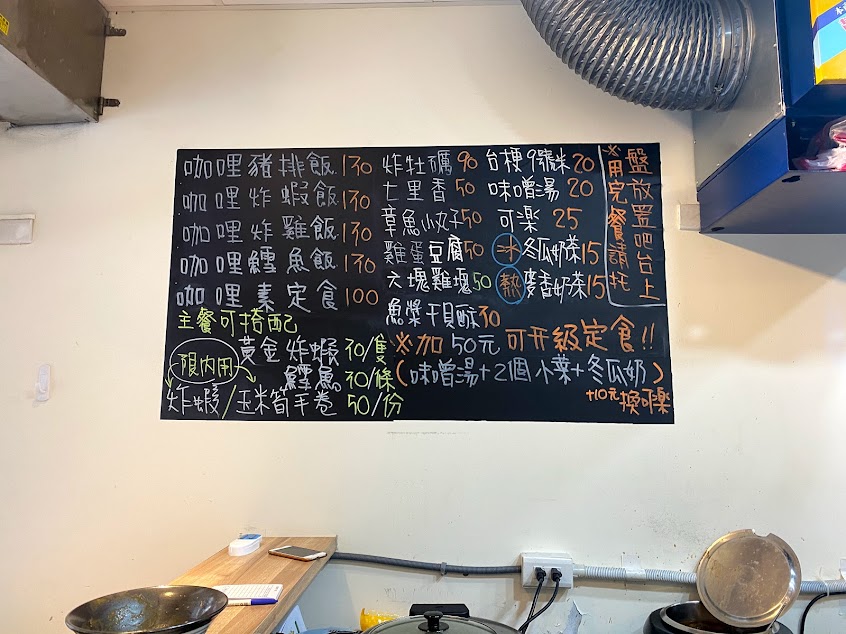 咖哩豬排飯 130
咖哩炸蝦飯 130
咖哩炸雞飯 130
咖哩鱈魚飯 130
咖哩素定食 100
主餐可搭配
限內用
黃金炸蝦 30/隻
鱈魚 30/條
炸蝦/玉米筍手卷 50/份
炸牡礪 90
七里香 50
章魚小丸子 50
雞蛋豆腐 50
六塊雞塊 50
魚漿干貝酥 30
台梗9號米 20
味噌湯 20
可樂 25
冰 冬瓜奶茶 15
熱 麥香奶茶 15
※加50元可升級定食!!
(味噌湯+2個小菜+冬瓜奶)
+10元換可樂
※用完餐請托
盤放置吧台上